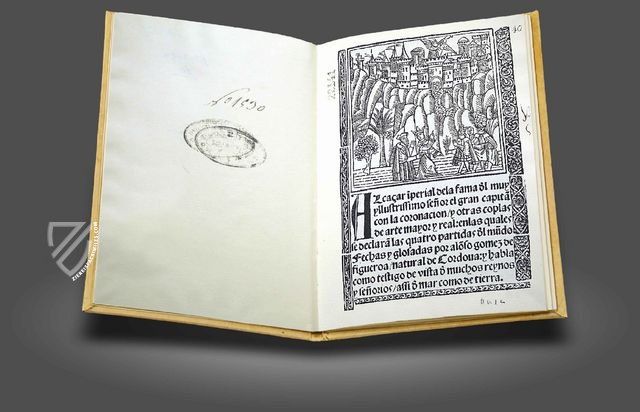 Alcaçar īperial dela fama dl muy
yllustrissimo señor el gran capitā
con la coronacion/ y otras coplas
de arte mayor y real: en las quales
se declarā las quatro partidas dl mūdo
Fechas y glosadas por alōso gomez de
figueroa/ natural de Cordoua: y habla
como testigo de vista d muchos reynos
y señorios/ assi d mar como de tierra.